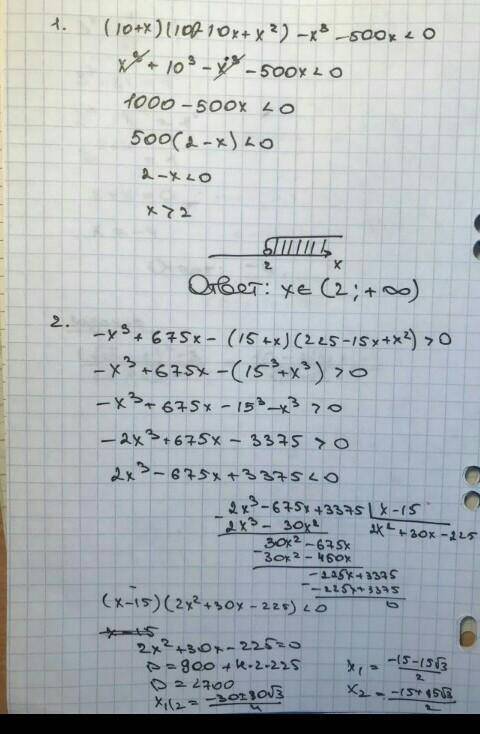 1. (10+x)(102-10x+x²)-x³-500x<0
x³+10³-x³-500x<0
1000-500x<0
500(2-x)<0
2-x<0
x>2
2 x
Ответ: x∈(2;+∞)
2. -x³+675x-(15+x)(225-15x+x²)>0
-x³+675x-(15³+x³)>0
-x³+675x-15³-x³>0
-2x³+675x-3375>0
2x³-675x+3375<0
-2x³-675x+3375 | x-15
2x³-30x² 2x²+30x-225
30x²-675x
-30x²-450x
-225x+3375
-225x+3375
0
(x-15)(2x²+30x-225)<0
x=15
2x²+30x-225=0
D=900+4·2·225 x₁=(-15-15√3)/2
D=2700 x₂=(-15+15√3)/2
x₁/₂=(-30±30√3)/4